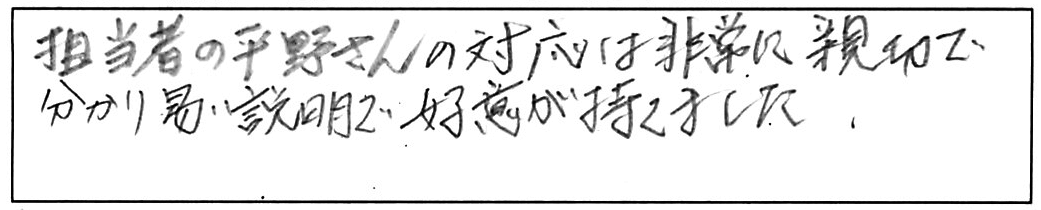 担当者の平野さんの対応は非常に親切で
分かり易い説明で好意が持てました.